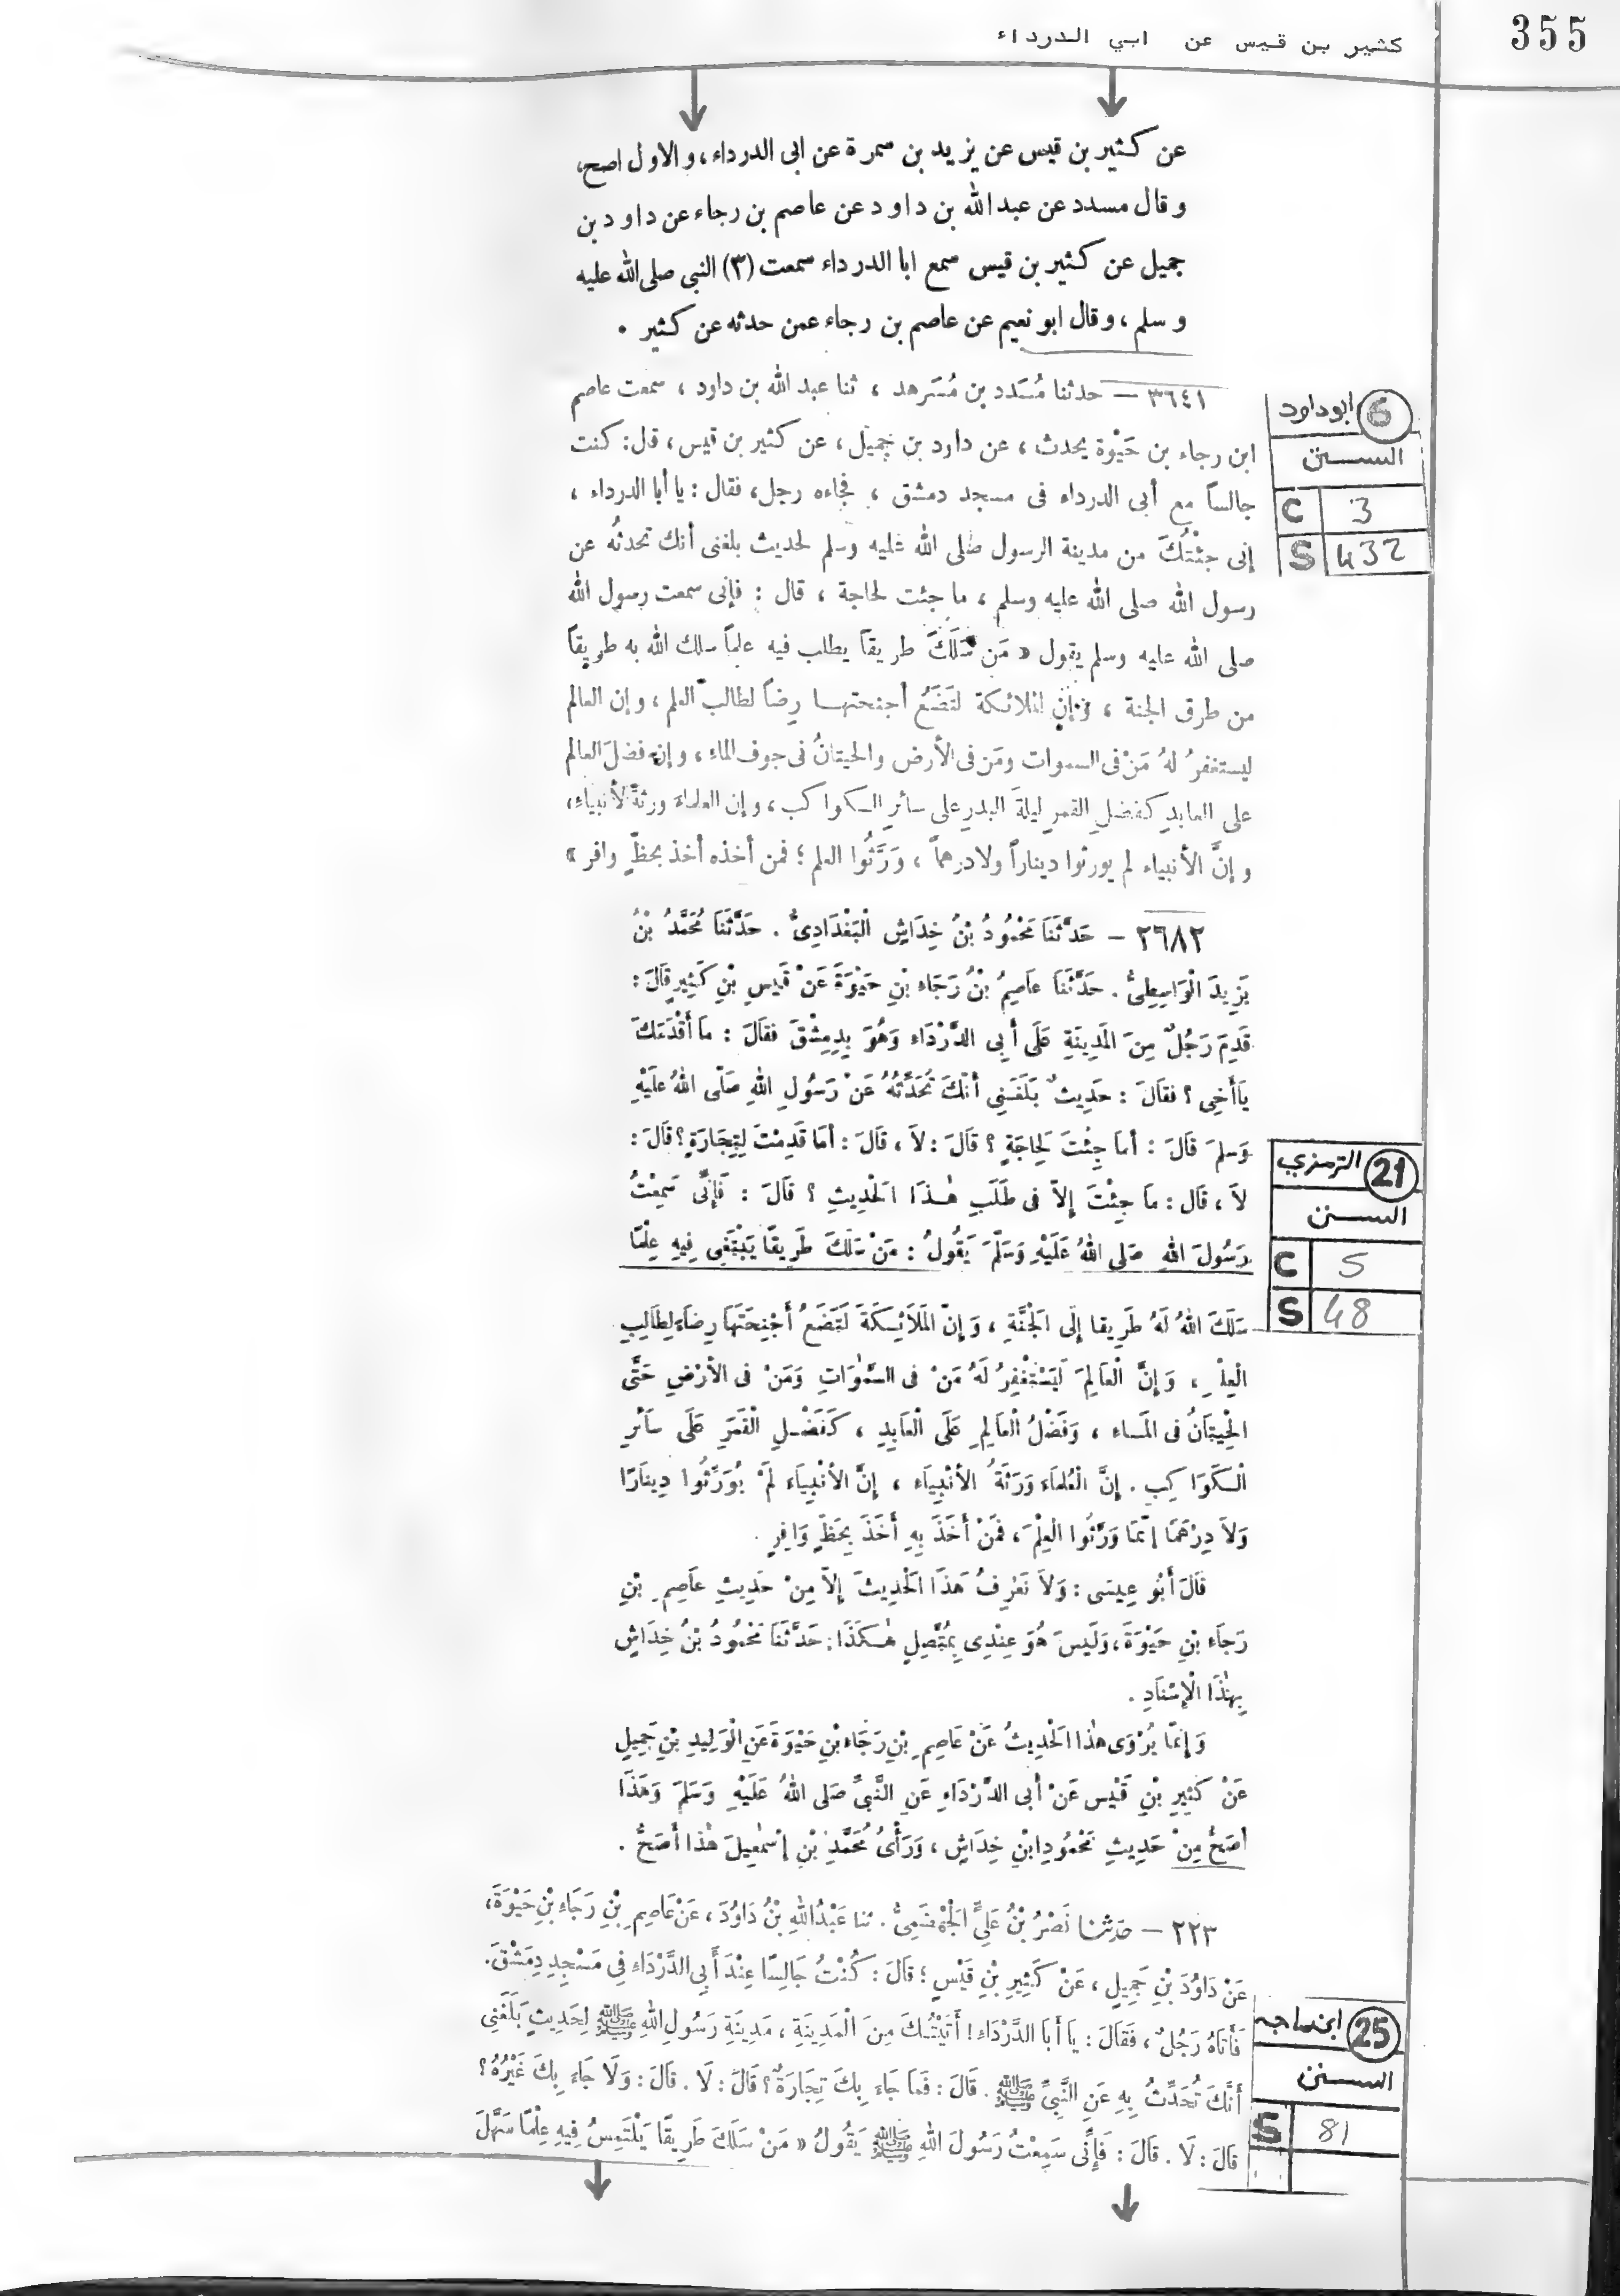 355
كثير بن قيس عن ابي الدرداء
عن كثير بن قيس عن يزيد بن سمرة عن ابى الدرداء ، و الاول اصح،
و قال مسدد عن عبد الله بن داود عن عاصم بن رجاء عن داود بن
جميل عن كثير بن قيس سمع ابا الدرداء سمعت (٣) النبى صلى الله عليه
و سلم ، و قال ابو نعيم عن عاصم بن رجاء عمن حدثه عن كثير ٠
٣٦٤١ — حدثنا مُسَدد بن مُسَرهد ، ثنا عبد الله بن داود ، سمعت عاصم
ابن رجاء بن حَيْوة يحدث ، عن داود بن جميل ، عن كثير بن قيس ، قال : كنت
جالساً مع أبى الدرداء فى مسجد دمشق ، فجاءه رجل، فقال : يا أبا الدرداء ،
إنى جئْتُكَ من مدينة الرسول صلى الله عليه وسلم لحديث بلغنى أنك تحدثُه عن
رسول الله صلى الله عليه وسلم ، ما جئت لحاجة ، قال : فإنى سمعت رسول الله
صلى الله عليه وسلم يقول « مَن سَلَكَ طريقاً يطلب فيه علماً سلك الله به طريقاً
من طرق الجنة ، وإن الملائكة لتَضَعُ أجنحتهـا رِضاً لطالب العلم ، وإن العالم
ليستغفرُ لهُ مَنْ فى السموات ومَن فى الأرض والحيتانُ فى جوف الماء ، وإن فضلَ العالم
على العابدِ كفضلِ القمرِ ليلةَ البدرِ على سائرِ الكواكب ، وإن العلماءَ ورثةُ الأنبياءِ،
وإنَّ الأنبياء لم يورثوا ديناراً ولا درهماً ، وَرَّثُوا العلم ؛ فمن أخذه أخذ بحظٍّ وافر »
6 ابوداود
السنن
C 3
S 432
٢٦٨٢ — حَدَّثَنَا مَحْمُودُ بْنُ خِدَاشٍ الْبَغْدَادِىُّ . حَدَّثَنَا مُحَمَّدُ بْنُ
يَزِيدَ الْوَاسِطِىُّ . حَدَّثَنَا عَاصِمُ بْنُ رَجَاءِ بْنِ حَيْوَةَ عَنْ قَيْسِ بْنِ كَثِيرٍ قَالَ :
قَدِمَ رَجُلٌ مِنَ المَدِينَةِ عَلَى أَبِى الدَّرْدَاءِ وَهُوَ بِدِمِشْقَ فَقَالَ : مَا أَقْدَمَكَ
يَا أَخِى ؟ فَقَالَ : حَدِيثٌ بَلَغَنِى أَنَّكَ تُحَدِّثُهُ عَنْ رَسُولِ اللهِ صَلَّى اللهُ عَلَيْهِ
وَسَلمَ قَالَ : أَمَا جِئْتَ لِحَاجَةٍ ؟ قَالَ : لاَ ، قَالَ : أَمَا قَدِمْتَ لِتِجَارَةٍ ؟ قَالَ :
لاَ ، قَال : مَا جِئْتَ إِلاَّ فى طَلَبِ هٰذَا الْحَدِيثِ ؟ قَالَ : فَإِنِّى سَمِعْتُ
رَسُولَ اللهِ صَلى اللهُ عَلَيْهِ وَسَلَّمَ يَقُولُ : مَنْ سَلَكَ طَرِيقًا يَبْتَغِى فِيهِ عِلْمًا
سَلَكَ اللهُ لَهُ طَرِيقا إِلَى الْجَنَّةِ ، وَإِنَّ المَلاَئِكَةَ لَتَضَعُ أَجْنِحَتَهَا رِضَاءً لِطَالِبِ
الْعِلْمِ ، وَإِنَّ الْعَالِمَ لَيَسْتَغْفِرُ لَهُ مَنْ فى السَّمٰوَاتِ وَمَنْ فى الأَرْضِ حَتَّى
الْحِيتَانُ فى المَـاءِ ، وَفَضْلُ الْعَالِمِ عَلَى الْعَابِدِ ، كَفَضْلِ الْقَمَرِ عَلَى سَائرِ
الْكَوَاكِبِ . إِنَّ الْعُلمَاءَ وَرَثَةُ الأَنْبِيَاءِ ، إِنَّ الأَنْبِيَاءَ لَمْ يُوَرِّثُوا دِينَارًا
وَلاَ دِرْهَمًا إِنَّمَا وَرَّثُوا الْعِلْمَ ، فَمَنْ أَخَذَ بِهِ أَخَذَ بِحَظٍّ وَافِرٍ .
قَالَ أَبُو عِيسَى : وَلاَ نَعْرِفُ هَذَا الْحَدِيثَ إِلاَّ مِنْ حَدِيثِ عَاصِمِ بْنِ
رَجَاءِ بْنِ حَيْوَةَ ، وَلَيْسَ هُوَ عِنْدِى بِمُتَّصِلٍ هٰكَذَا : حَدَّثَنَا مَحْمُودُ بْنُ خِدَاشٍ
بِهٰذَا الْإِسْنَادِ .
وَإِنَّمَا يُرْوَى هٰذَا الْحَدِيثُ عَنْ عَاصِمِ بْنِ رَجَاءِ بْنِ حَيْوَةَ عَنِ الْوَلِيدِ بْنِ جَمِيلٍ
عَنْ كَثِيرِ بْنِ قَيْس عَنْ أَبى الدَّرْدَاءِ عَنِ النَّبىِّ صَلى اللهُ عَلَيْهِ وَسَلمَ وَهَذَا
أَصَحُّ مِنْ حَدِيثِ مَحْمُودِ ابْنِ خِدَاشٍ ، وَرَأْىُ مُحَمَّدِ بْنِ إِسْمٰعِيلَ هٰذَا أَصَحُّ .
21 الترمذي
السنن
C 5
S 48
٢٢٣ — حدّثنا نَصْرُ بْنُ عَلِيٍّ الْجَهْضَمِيُّ . ثنا عَبْدُ اللهِ بْنُ دَاوُدَ ، عَنْ عَاصِمِ بْنِ رَجَاءِ بْنِ حَيْوَةَ ،
عَنْ دَاوُدَ بْنِ جَمِيلٍ ، عَنْ كَثِيرِ بْنِ قَيْسٍ ؛ قَالَ : كُنْتُ جَالِسًا عِنْدَ أَبِي الدَّرْدَاءِ فِي مَسْجِدِ دِمَشْقَ .
فَأَتَاهُ رَجُلٌ ، فَقَالَ : يَا أَبَا الدَّرْدَاءِ ! أَتَيْتُكَ مِنَ الْمَدِينَةِ ، مَدِينَةِ رَسُولِ اللهِ ﷺ لِحَدِيثٍ بَلَغَنِي
أَنَّكَ تُحَدِّثُ بِهِ عَنِ النَّبِيِّ ﷺ . قَالَ : فَمَا جَاءَ بِكَ تِجَارَةٌ ؟ قَالَ : لَا . قَالَ : وَلَا جَاءَ بِكَ غَيْرُهُ ؟
قَالَ : لَا . قَالَ : فَإِنِّي سَمِعْتُ رَسُولَ اللهِ ﷺ يَقُولُ « مَنْ سَلَكَ طَرِيقًا يَلْتَمِسُ فِيهِ عِلْمًا سَهَّلَ
25 ابن ماجه
السنن
S 81